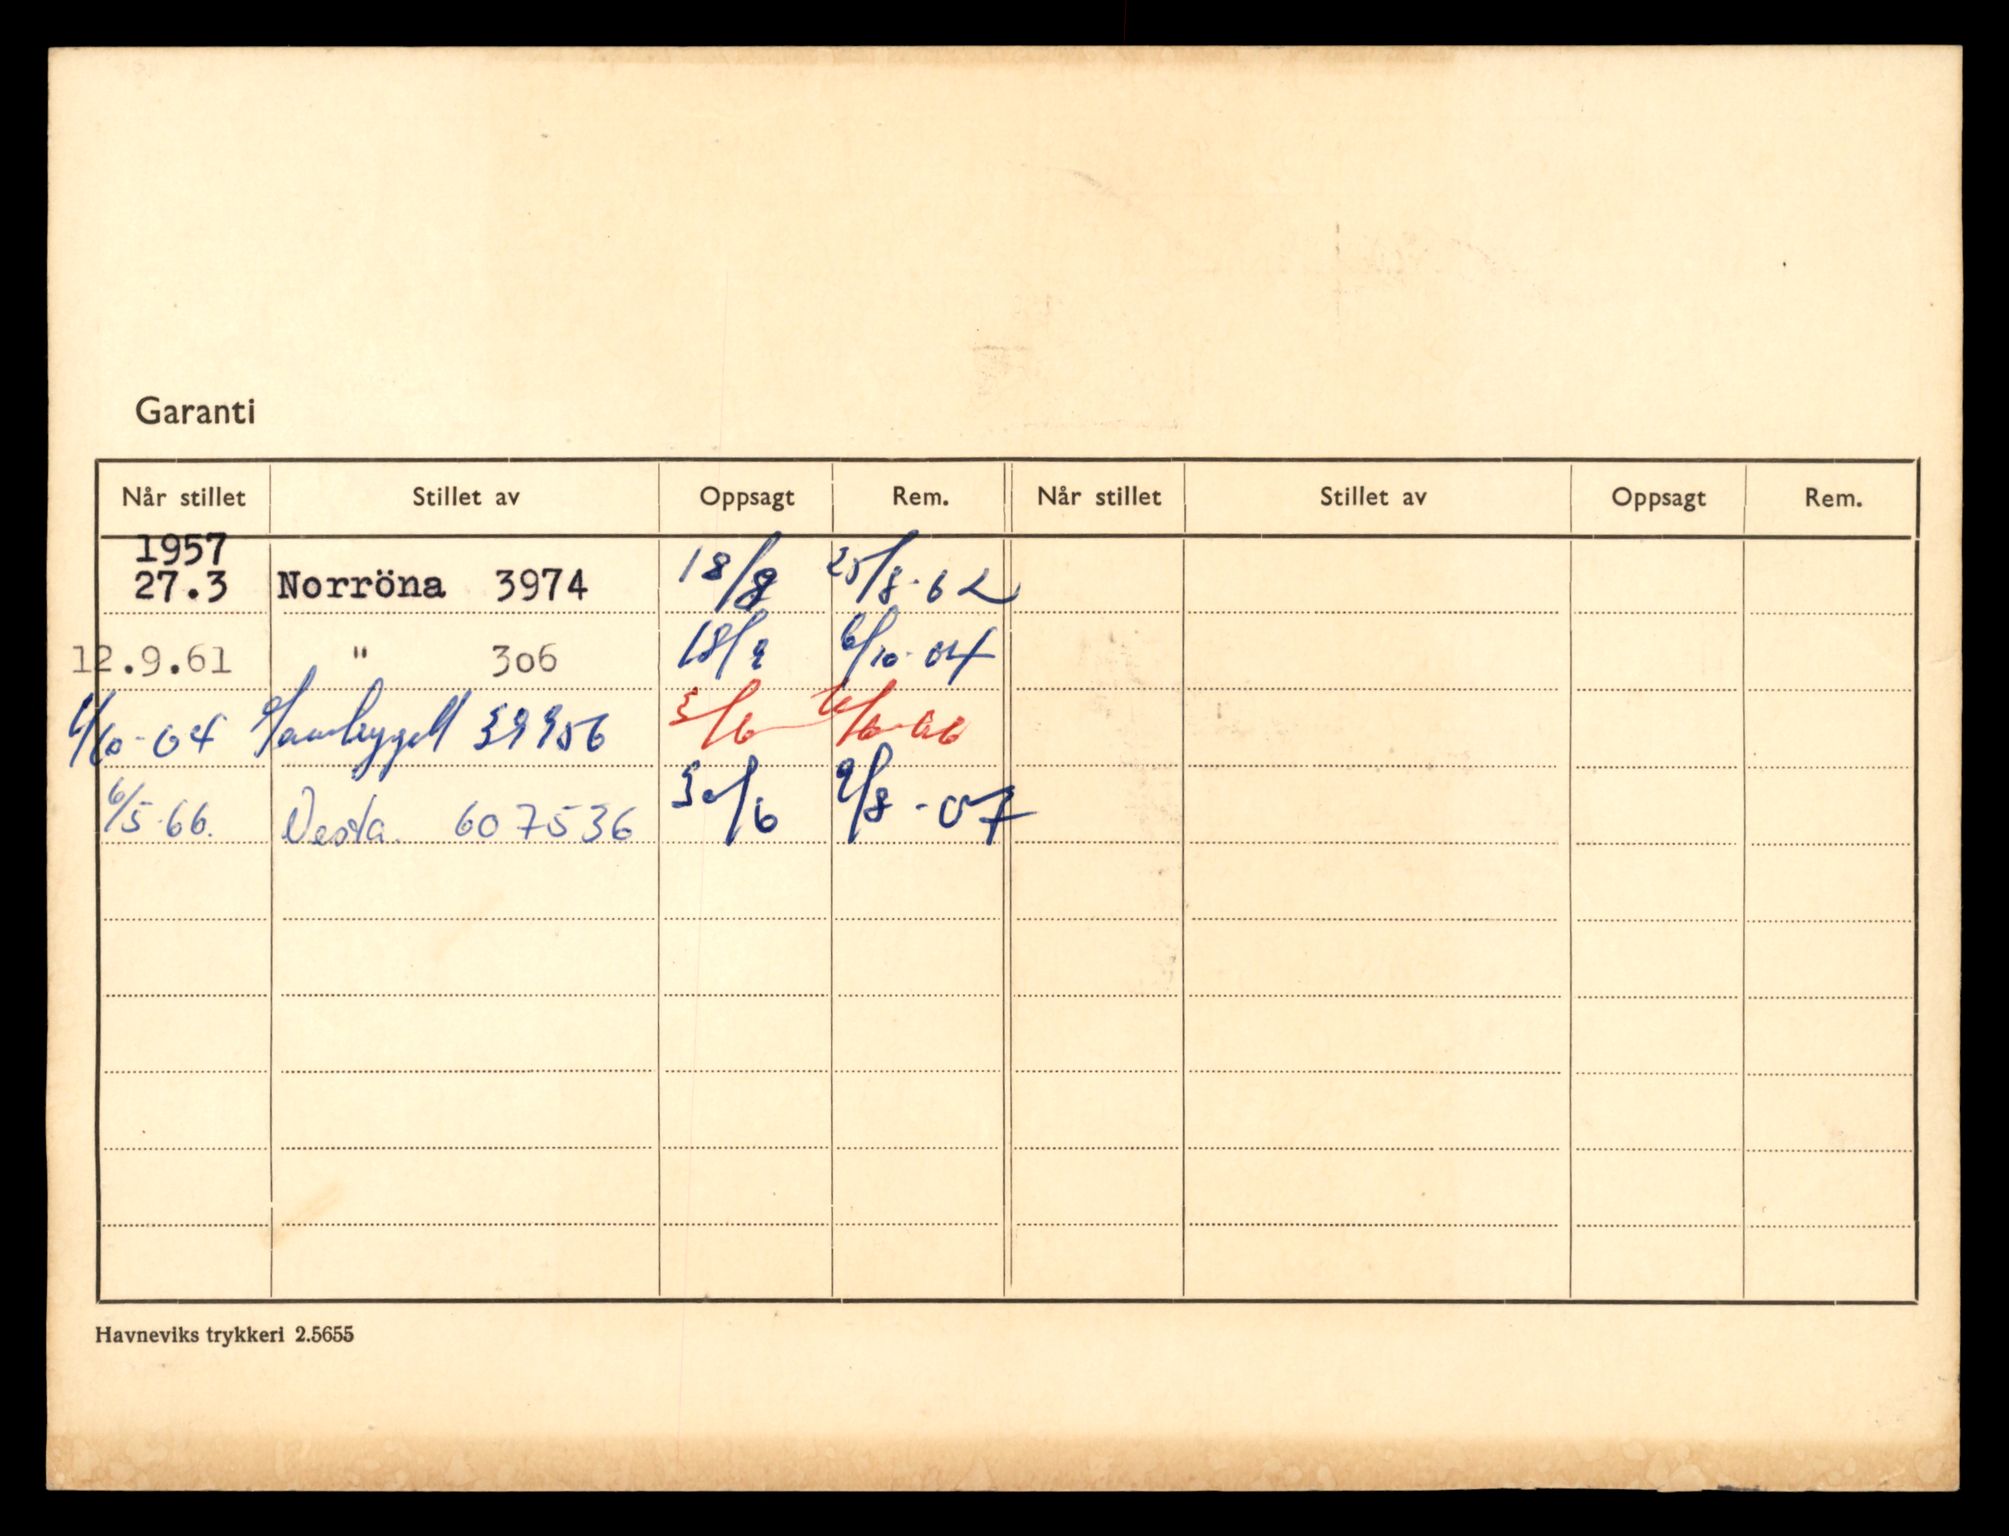 Garanti
Når stillet Stillet av Oppsagt Rem. Når stillet Stillet av Oppsagt Rem.
1957
27.3 Norröna 3974 18/8 25/8-62
12.9.61 " 306 18/9 6/10-64
6/10-64 Samtrygd 39956 3/6
6/5-66. Vesta. 607536 30/6 9/8-67
Havneviks trykkeri 2.5655